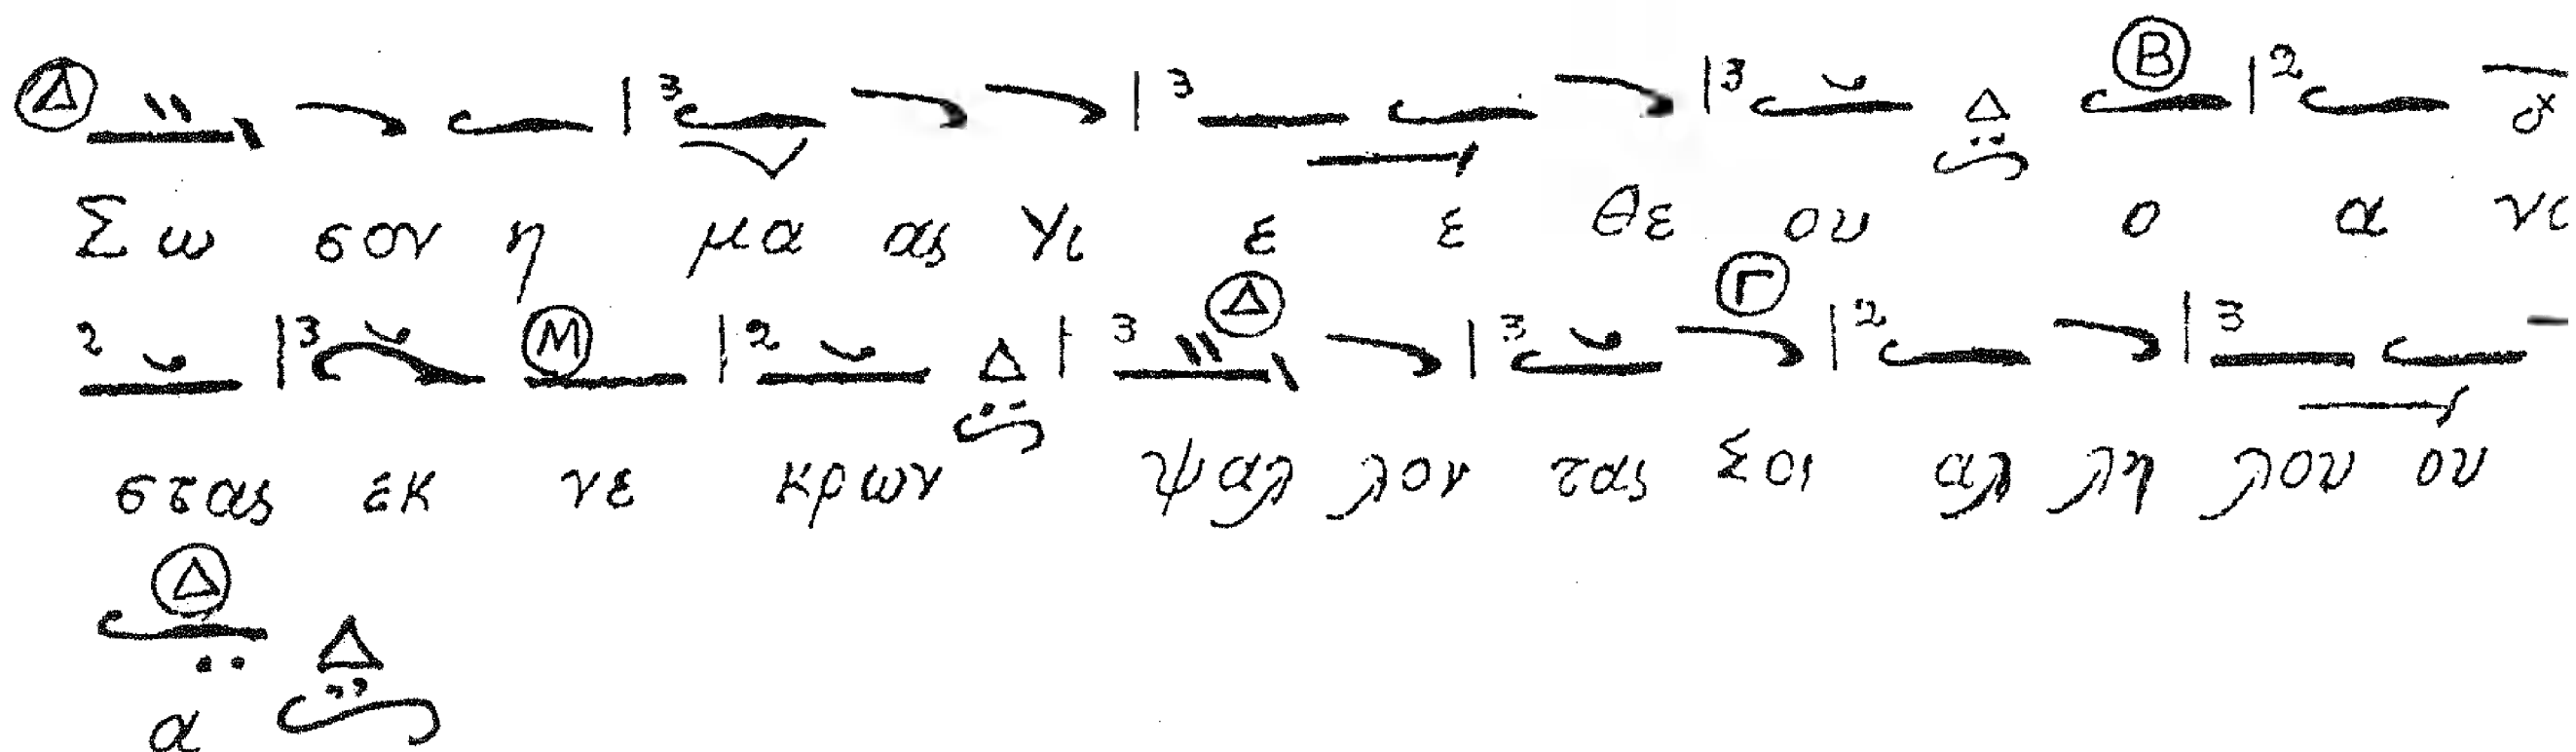 Δ 3 3 3 Δ Β 2
Σω σον η μα ας Υι ε ε Θε ου ο α νι
2 3 Μ 2 Δ 3 Δ 3 Γ 2 3
στας εκ νε κρων ψαλ λον τας Σοι αλ λη λου ου
Δ Δ
α